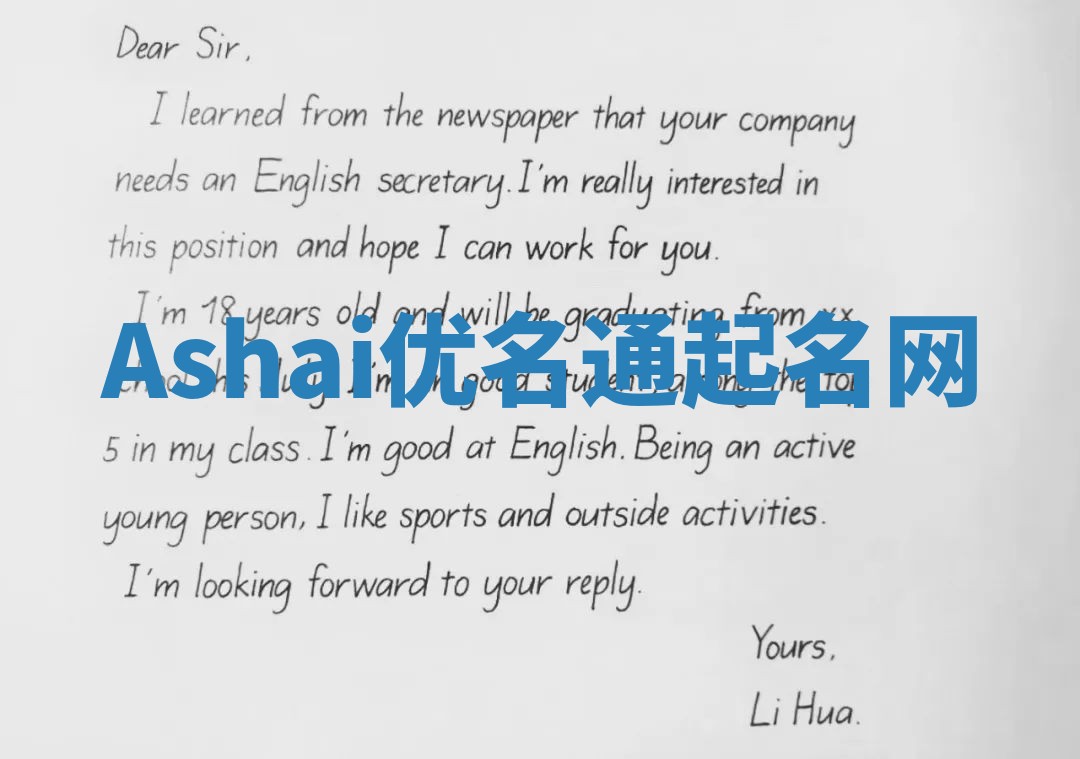 Dear Sir,
I learned from the newspaper that your company
needs an English secretary. I'm really interested in
this position and hope I can work for you.
I'm 18 years old and will be graduating from xx
Ashai优名通起名网
July. I'm good student, among the top
5 in my class. I'm good at English. Being an active
young person, I like sports and outside activities.
I'm looking forward to your reply.
Yours,
Li Hua.